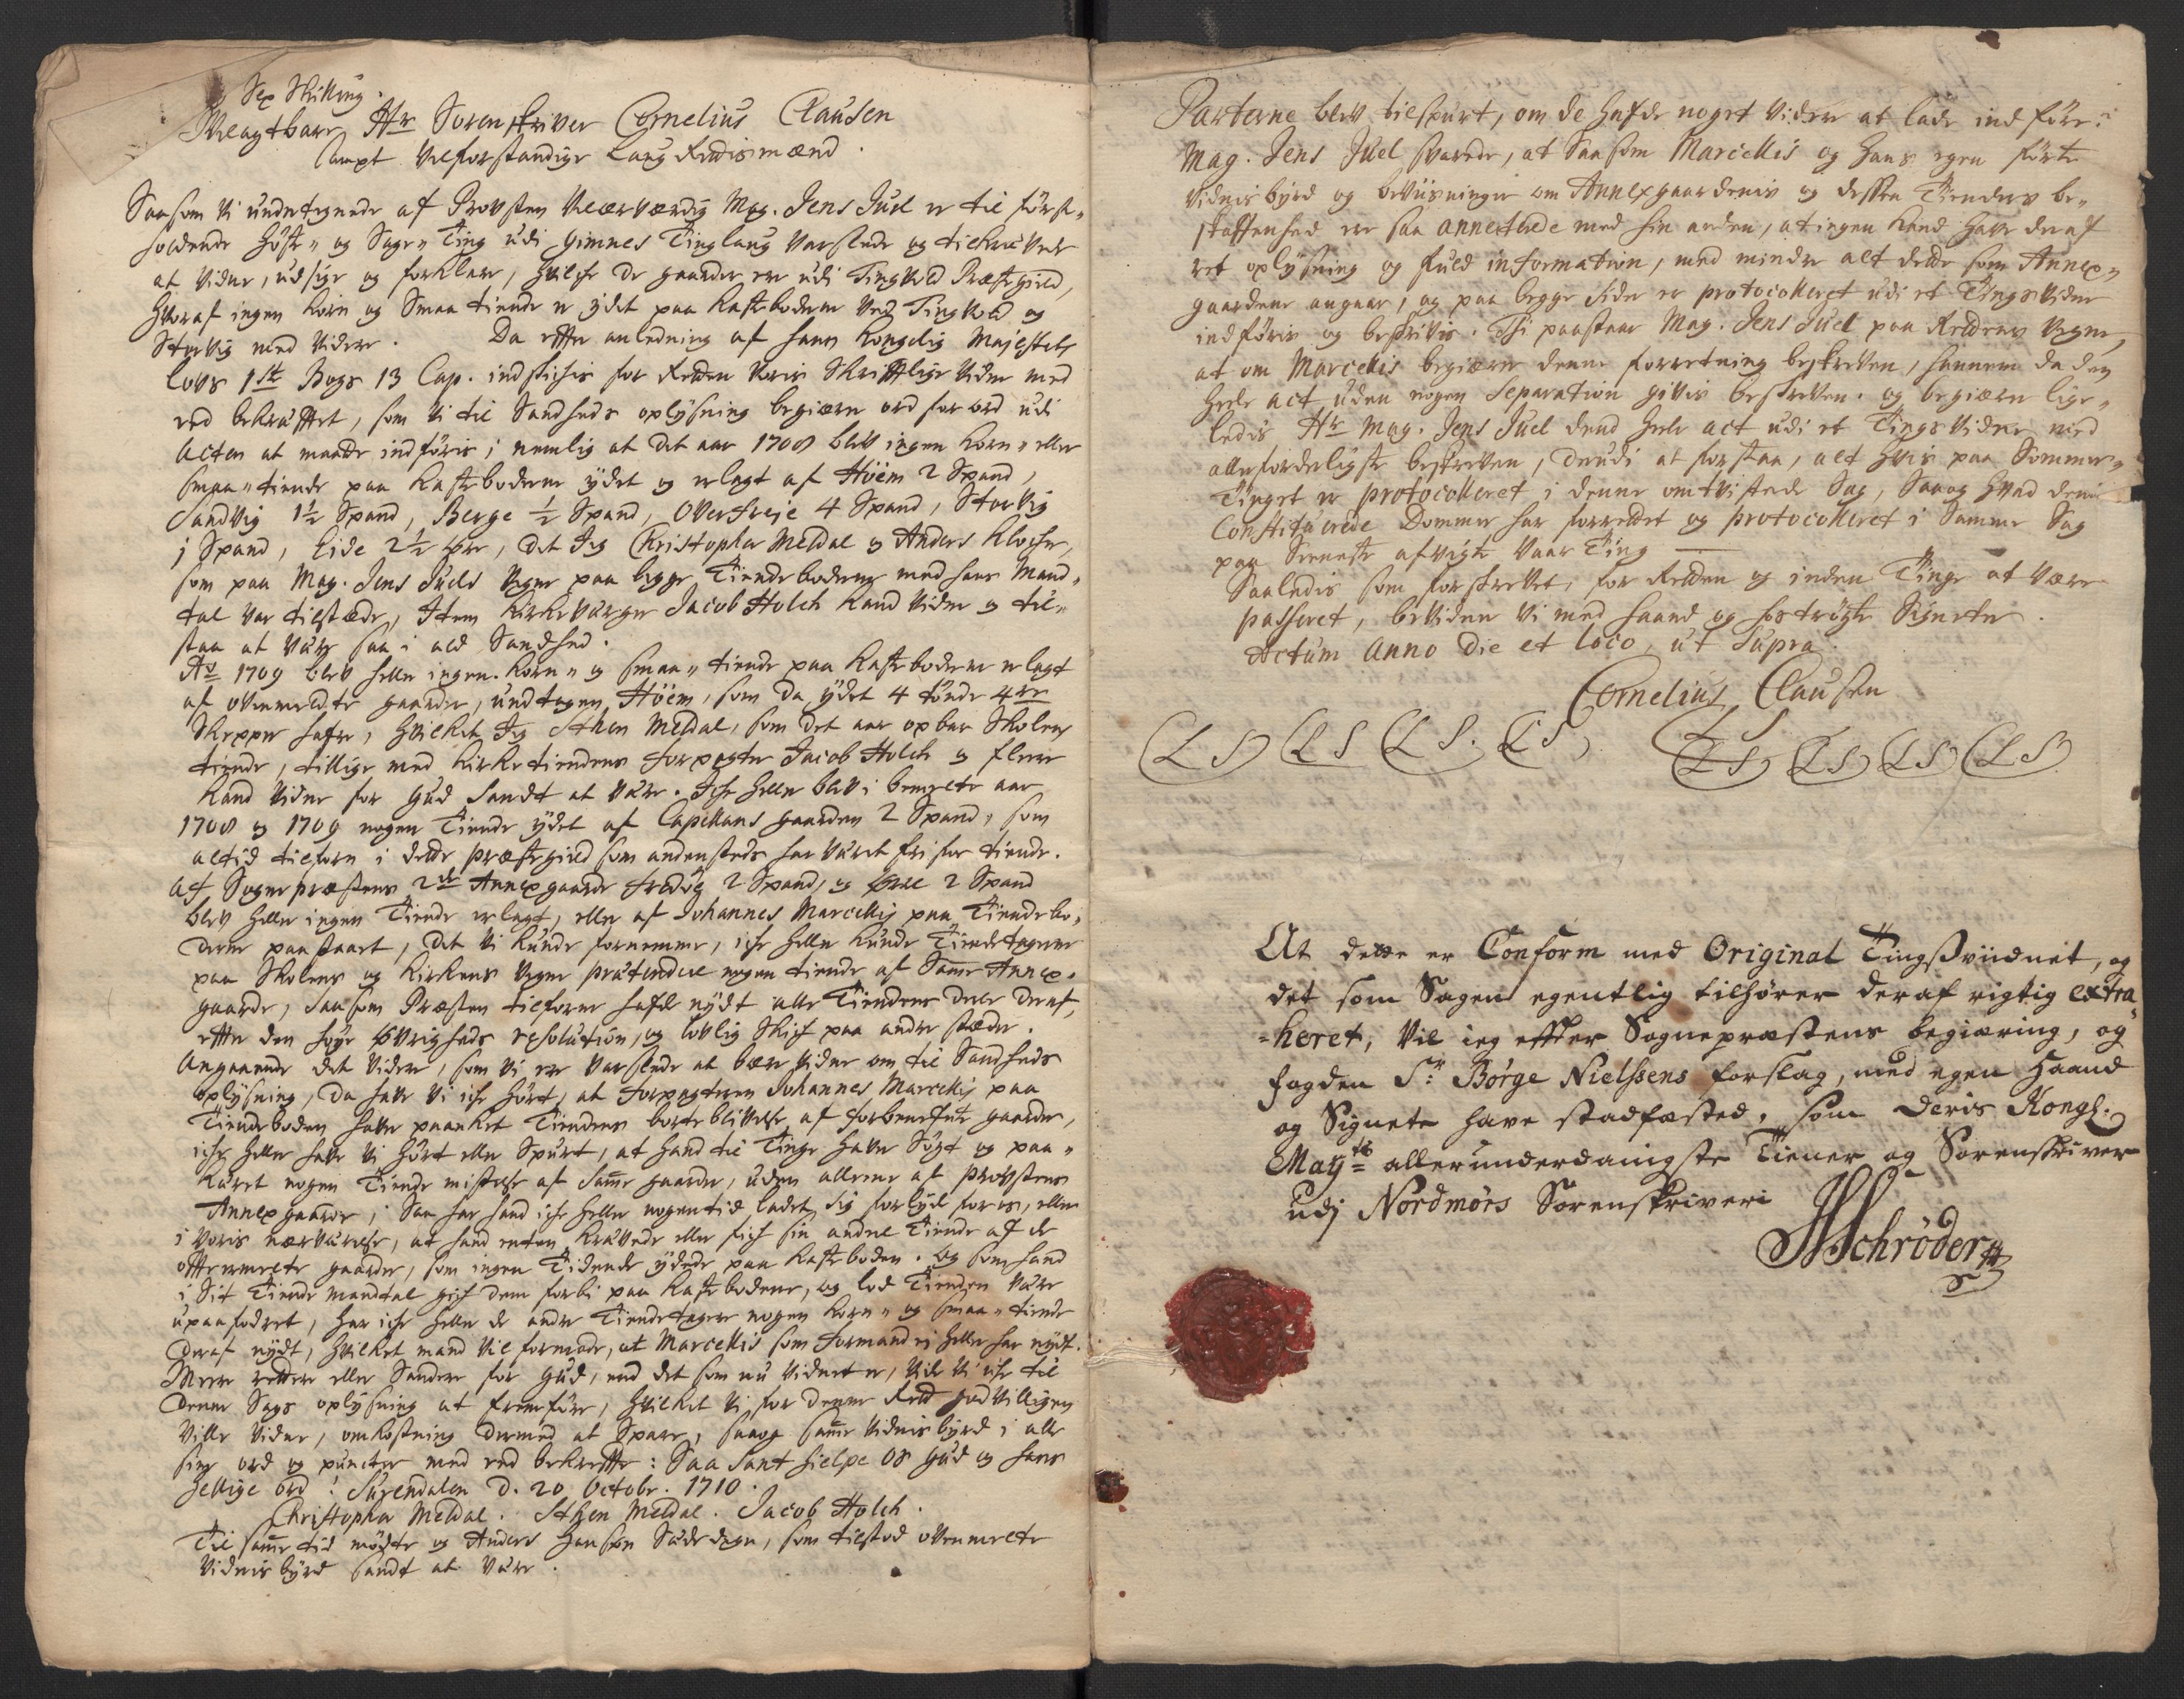 Sex Skilling.
Velagtbare Hr Sorenskriver Cornelius Clausen
sampt Velforstandige Laug Rettismænd.
Saasom vi undertegnede af Provsten Velærværdig Mag. Jens Juel er til først-
holdende Høste- og Sage-Ting udi Gimnes Tinglaug varslede og tilkrævede
at vidne, udsige og forklare, hvilche de gaarder ere udi Tingvold Præstegield,
hvoraf ingen korn og Smaa tiende er ydet paa kasteboderne ved Tingvold og
Storvig med videre. Da efter anledning af hans Kongelig Majestets
lovs 1ste Bogs 13 Cap. indskichis for Retten voris Skriftlige vidne med
eed bekræftet, som vi til Sandheds oplysning begiære ord for ord udi
acten at maatte indføris; nemlig at det aar 1708 blev ingen korn- eller
smaa-tiende paa kasteboderne ydet og erlagt af Höëm 2 Spand,
Sandvig 1½ Spand, Berge ½ Spand, Overfreje 4 Spand, Storvig
1 Spand, Eide 2½ öre, det Jeg Christopher Meldal og Anders Klocher,
som paa Mag. Jens Juels vegne paa begge Tiende boderne med hans Mand-
tal var tilstæde, Item kirkeværger Jacob Holch kand vidne og til-
staa at være saa i ald Sandhed.
Ao 1709 blev heller ingen korn- og smaa-tiende paa kasteboderne erlagt
af ovenmeldte gaarder, undtagen Höëm, som da ydet 4 tönde 4re
Skepper hafre, hvilket Jeg Sthen Meldal, som det aar opbar Skolens
tiende, tillige med kirke tiendens Forpagter Jacob Holch og flere
kand vidne for Gud Sandt at være. Iche heller blev i bemelte aar
1708 og 1709 nogen Tiende ydet af Capellans gaarden 2 Spand, som
altid tilforn i dette præstegield som andensteds har været fri for tiende.
Af Sogne præstens 2de Annex gaarde Fredvg 2 Spand, og 2 Spand
blev heller ingen Tiende erlagt, eller af Johannes Marcellij paa Tiende bo-
derne paastaaet, det vi kunde fornemme, iche heller kunde Tiendetagerne
paa Skolens og kirkens vegne prætendere nogen tiende af Samme Annex-
gaarde, saasom Præsten tilforne hafde nydt alle Tiendens dele deraf,
efter den høye øvrigheds resolution, og lovlig Skich paa andre stæder.
Angaaende det videre, som vi ere varslede at bære vidne om til Sandheds
oplysning, da have vi iche hört, at Forpagteren Johannes Marcellij paa
Tiendeboden have paaanket Tiendens borteblivelse af forbenefnte gaarder,
iche heller have vi hört eller Spurt, at hand til Tinge haver Sögt og paa-
kæret nogen Tiende mistelse af Samme gaarder, uden allene af Provstens
Annexgaarde; Saa har hand iche heller nogentid ladet sig forlyde foris, eller
i voris nærværelse, at hand enten krævede eller fich sin andeel Tiende af de
oftermelte gaarder, som ingen Tidende ydede paa kasteboden. Og som hand
i Sit Tiende mandtal gich dem forbi paa kasteboderne, og lod Tienden være
upaafodret, har iche heller de andre Tiendetagere nogen korn- og smaa-tiende
deraf nydt, hvilket mand vil formode, at Marcellis som Formand ej heller har nydt.
Mere rettere eller Sandere for Gud, end det som nu vidnet er, vide vi iche til
denne Sags oplysning at fremføre, hvilket vi for denne Rett godvilligen
ville vidne, omkostning dermed at Spare, saaog Samme vidnisbyrd i alle
sine ord og puncter med eed bekræfte: Saa sant hielpe os Gud og hans
hellige ord! Surendalen d. 20 Octobr. 1710.
Christopher Meldal. Sthen Meldal. Jacob Holch.
Til samme tid mödte og Anders Hansøn Sædedegn, som tilstod ovenmelte
vidnisbyrd sandt at være.
Parterne blev tilspurt, om de hafde noget videre at lade indføre:
Mag. Jens Juel svarede, at Saasom Marcellis og hans egen førte
vidnisbyrd og beviisninger om Annexgaardenis og desses Tienders be-
skaffenhed ere saa annecterede med hin anden, at ingen kand have deraf
ret oplysning og fuld information, med mindre alt dette som Annex-
gaardene angaar, og paa begge sider er protocolleret udi et Tingsvidne
indføris og beskrivis. Thi paastaar Mag. Jens Juel paa Rettens vegne,
at om Marcellis begiærer denne forretning beskreven, hannem da den
heele act uden nogen Separation givis beskreven. og begiærer lige-
ledis Hr Mag. Jens Juel dend heele act udi et Tingsvidne med
allerforderligste beskreven, derudi at forstaa, alt hvis paa Sommer-
Tinget er protocolleret i denne omtvistede Sag, Saaog hvad den
Constituerede Dommer har forrettet og protocolleret i Samme Sag
paa Seeneste afvigte vaar Ting
Saaledis som forskrevet, for Retten og inden Tinge at være
passeret, bevidner vi med haand og hoströgte Signeter.
Actum Anno Die et loco, ut Supra.
Cornelius Clausen
LS LS LS. LS LS
LS LS LS LS
At dette er Conform med Original Tingßviidnet, og
det som Sagen egentlig tilhører deraf rigtig extra
=heret, Vil ieg effter Sognepræstens begiæring, og
fogden Sr: Børge Nielssens forslag, med egen Haand
og Signete have stadfæsted, som Deris Kongl:
Mayts allerunderdanigste Tiener og Sorenskriver
udj Nordmørs Sorenskriveri
Schrøder